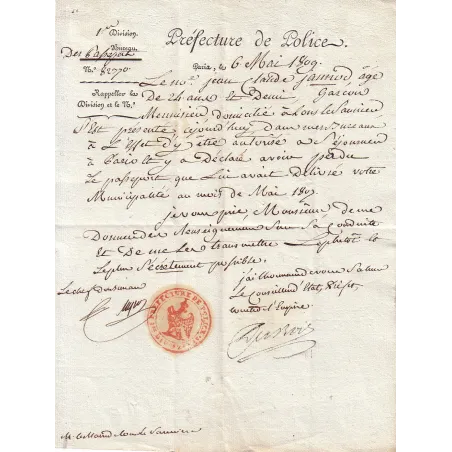 1ere Division.
Bureau
Des Passeports
N.° 82770
Rappeller la
Division et le N.°
Préfecture de Police.
Paris, le 6 Mai 1809.
Le nommé jean Claude janniod âgé
de 24 ans et Demi Garçon
Menuisier, domicilié à Lons le Saunier
S'Est présenté ajourd'huy, dans mes Bureaux
à L'Effet d'y être autorisé a Séjourner
à Paris Et y a Déclaré avoir perdu
le passeport que Lui avait Délivré votre
Municipalité au mois de Mai 180
je vous prie, Monsieur de me
Donner des Renseignemens Sur Sa Conduite
Et De me Les transmettre Le plutot et
Le plus Secrètement possible.
j'ai l'honneur de vous Saluer
Le Conseiller d'Etat, Préfet,
Comte de l'Empire
Le chef du Bureau
Dubois
M. le Maire de Lons le Saunier